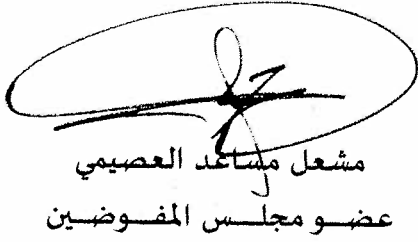 مشعل مساعد العصيمي
عضو مجلس المفوضين